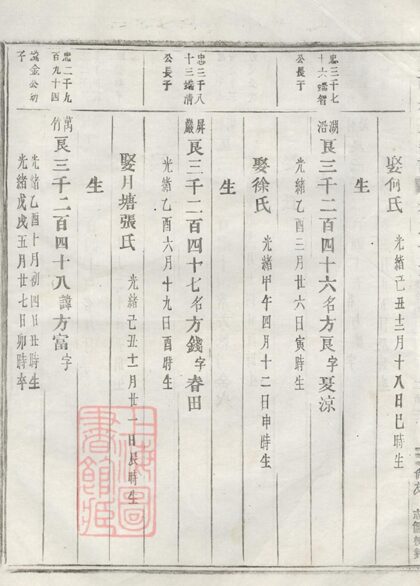 娶何氏 光緒己丑三月十八日巳時生
生
忠三千七
十六端智
公長子
湖沿 良三千二百四十六名方良字夏涼
光緒乙酉三月廿六日寅時生
娶徐氏 光緒甲午四月十二日申時生
生
忠三千八
十三端清
公長子
屏巖 良三千二百四十七名方錢字春田
光緒乙酉六月十九日酉時生
娶月塘張氏 光緒己丑十二月廿一日辰時生
生
忠二千九
百九十四
金公幼
子
萬竹 良三千二百四十八諱方富字
光緒乙酉十月初四日丑時生
光緒戊戌五月廿七日卯時卒
上海圖書館藏